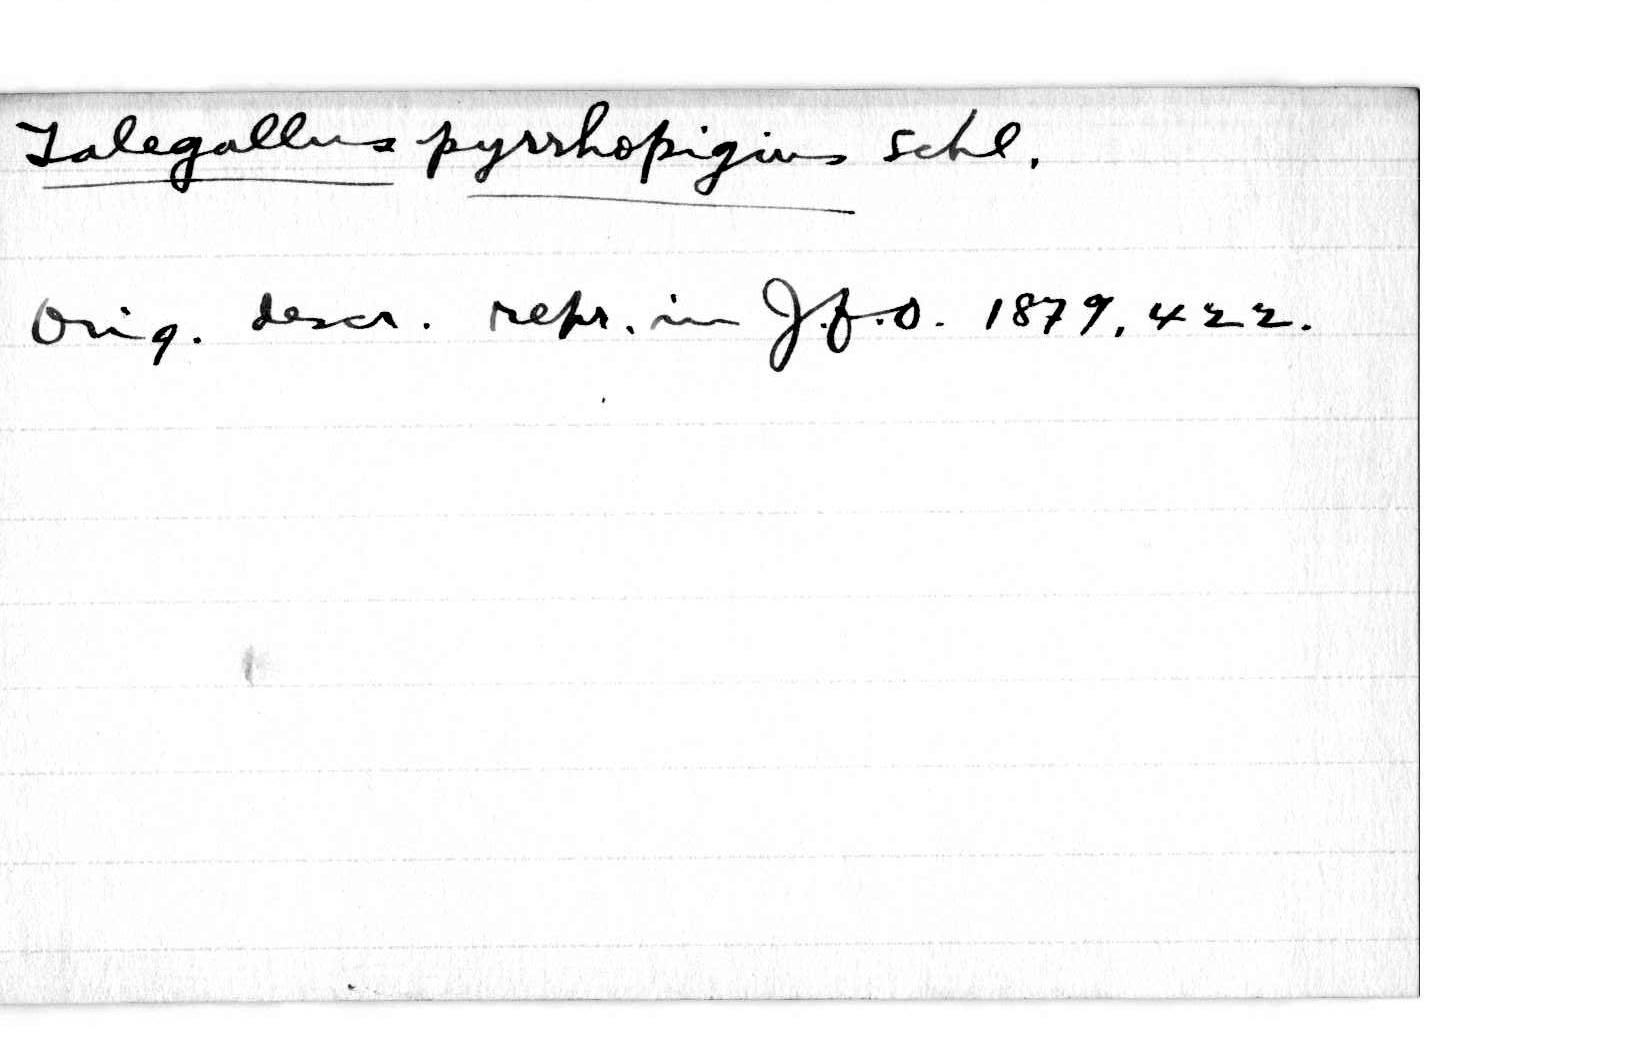 Talegallus pyrrhopigius Schl.
Orig. descr. repr. in J.f.O. 1879, 422.